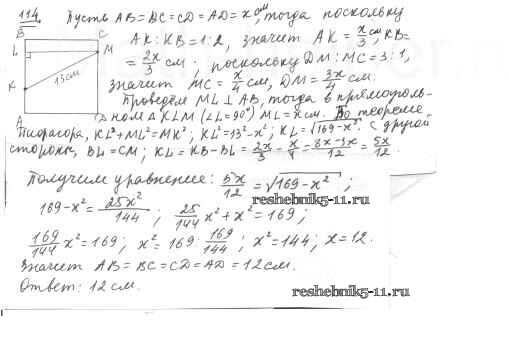 114. Пусть AB=BC=CD=AD=x см, тогда поскольку
B C
AK:KB=1:2, значит AK=x/3 см, KB=
L M
=2x/3 см; поскольку DM:MC=3:1,
13см
K
значит MC=x/4 см, DM=3x/4 см.
Проведём ML⊥AB, тогда в прямоуголь-
A
ном ΔKLM (∠L=90°) ML=x см. По теореме
Пифагора, KL²+ML²=MK²; KL²=13²-x²; KL=√169-x². С другой
стороны, BL=CM; KL=KB-BL=2x/3-x/4=8x-3x/12=5x/12.
Получим уравнение: 5x/12=√169-x²;
169-x²=25x²/144; 25/144x²+x²=169;
reshebnik5-11.ru
169/144x²=169; x²=169·169/144; x²=144; x=12.
Значит AB=BC=CD=AD=12см.
Ответ: 12см.
reshebnik5-11.ru